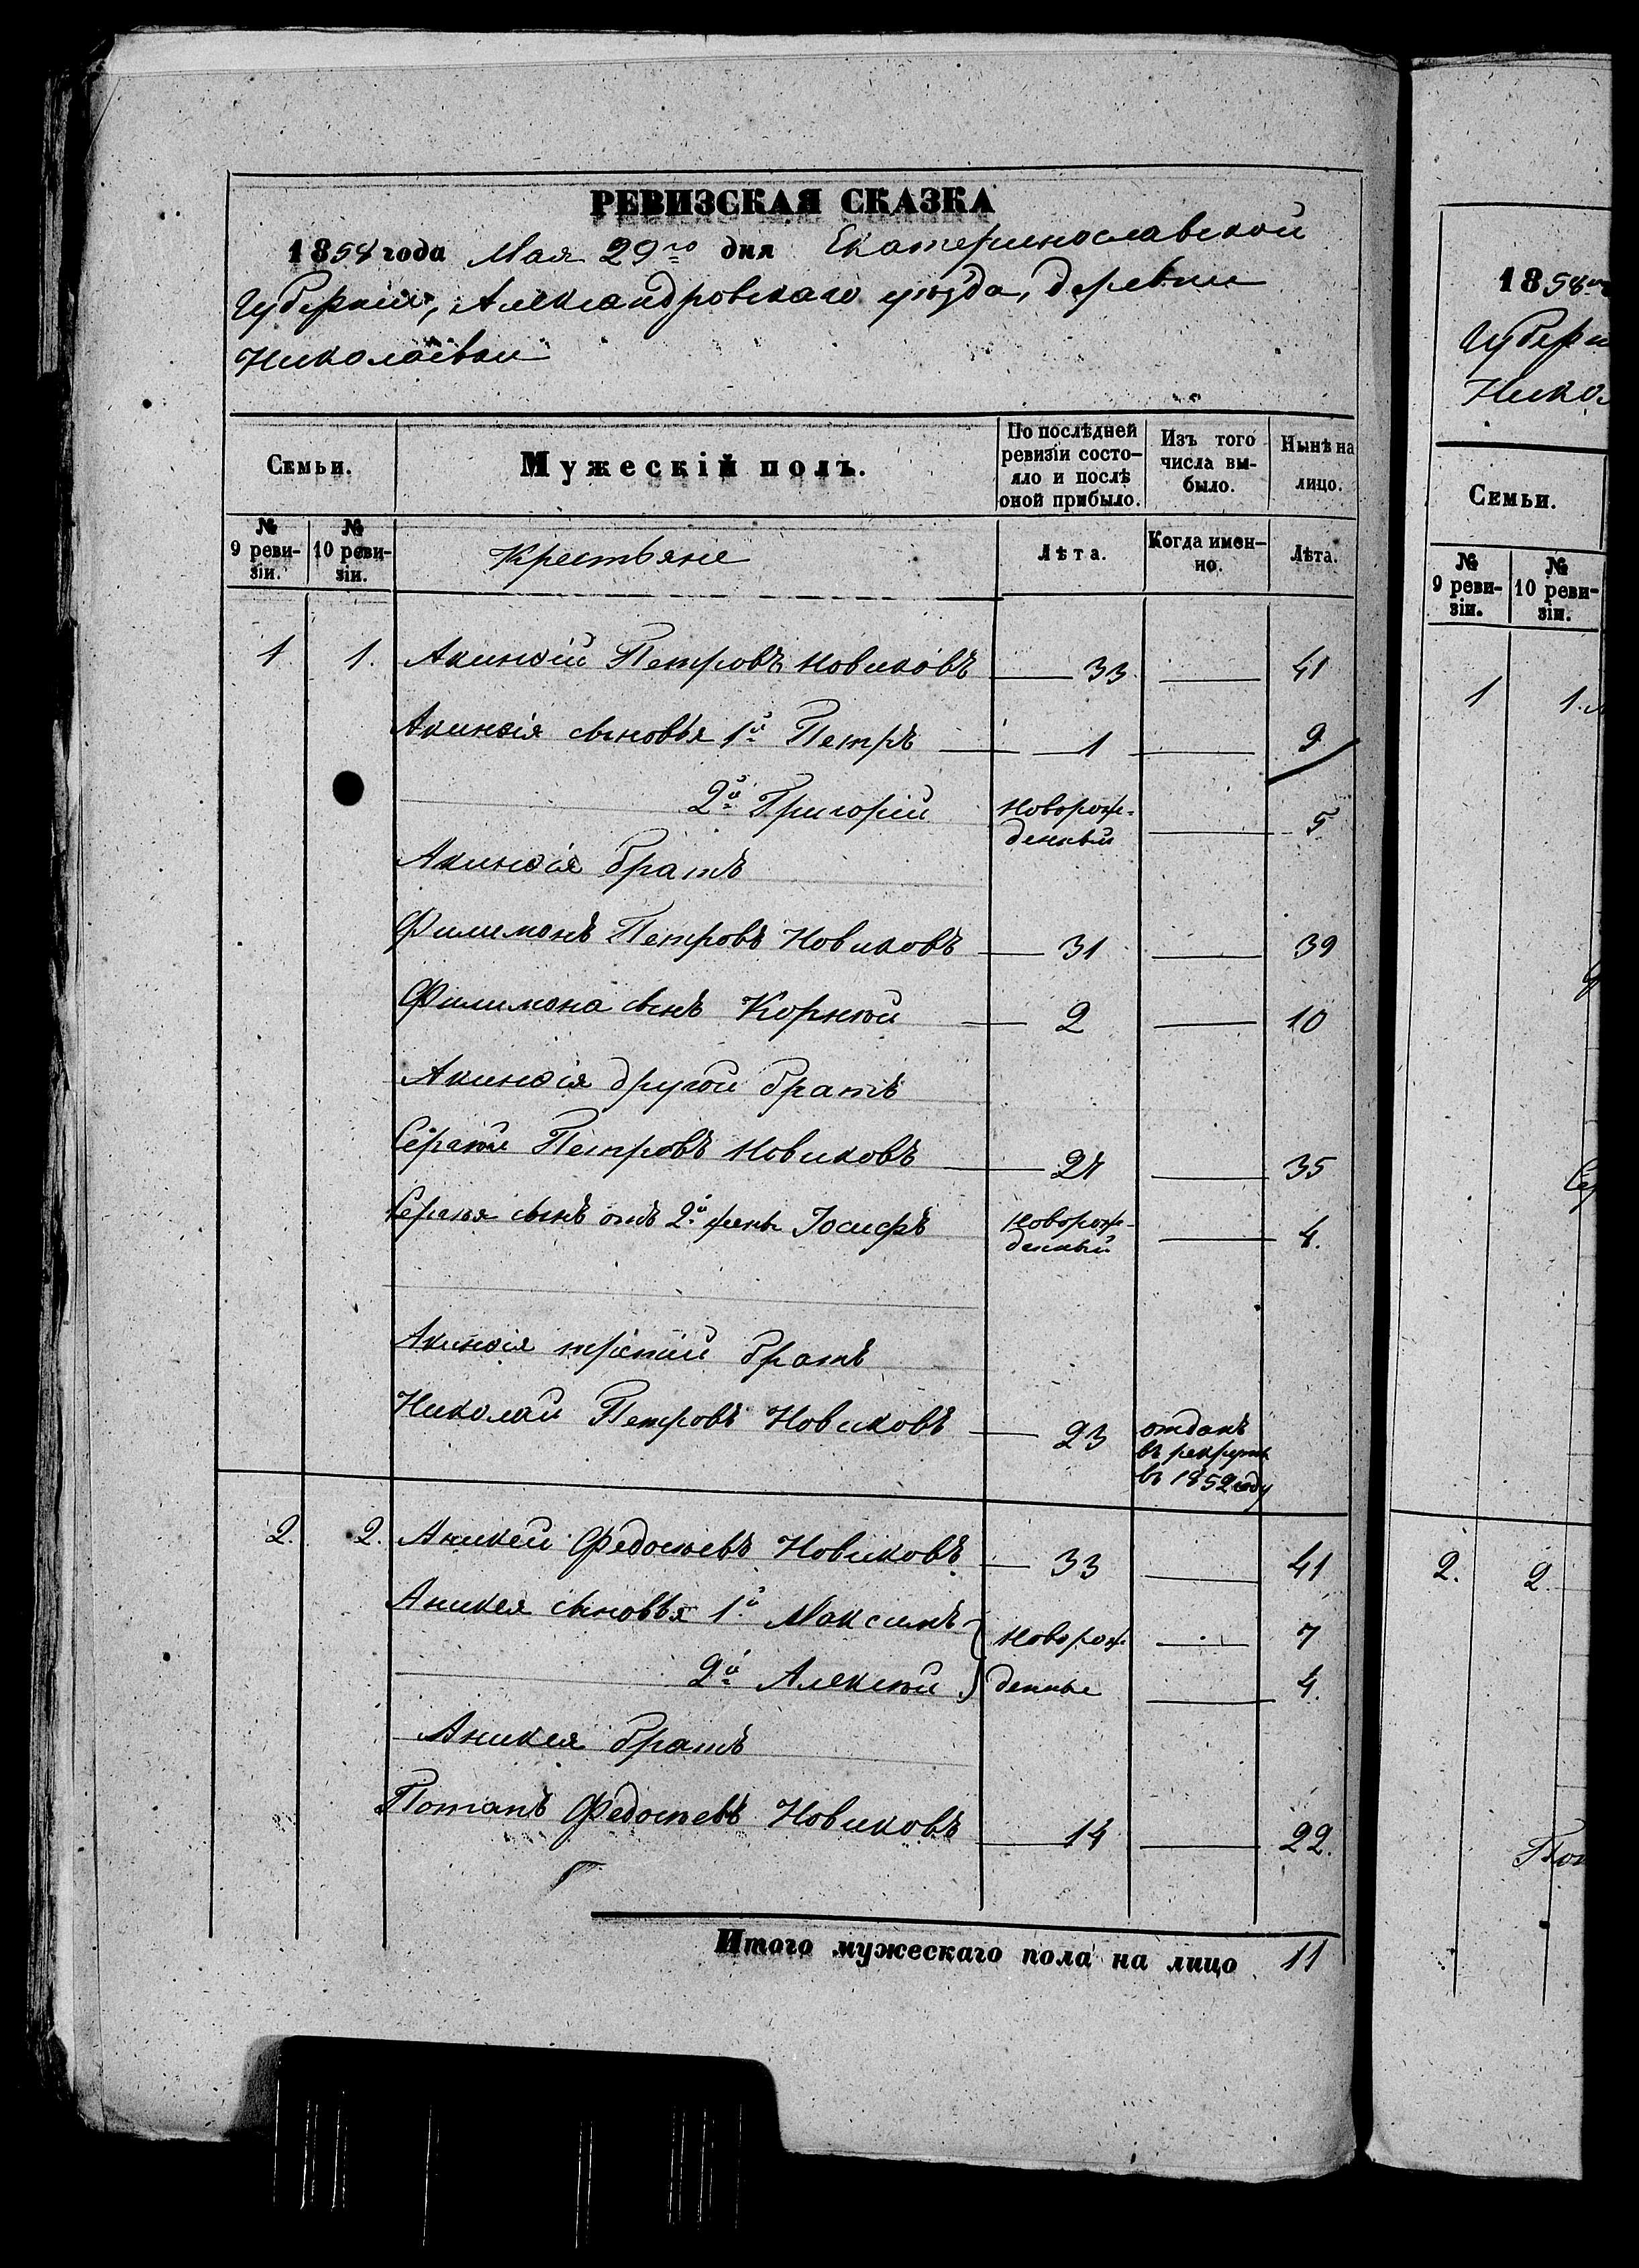 РЕВИЗСКАЯ СКАЗКА
1858 года Мая 29го дня Екатеринославской
Губерніи, Александровскаго уѣзда, деревни
Николаевки
Семьи.
Мужескій полъ.
По послѣдней ревизіи состо-яло и послѣ оной прибыло.
Изъ того числа вы-было.
Нынѣ на лицо.
№ 9 реви-зіи.
№ 10 реви-зіи.
Крестьяне
Лѣта.
Когда имен-но.
Лѣта.
1 1. Акинѳій Петровъ Новиковъ 33 41
Акинѳія сыновья 1й Петръ 1 9
2й Григорій Новорож-денный 5
Акинѳія братъ
Филимонъ Петровъ Новиковъ 31 39
Филимона сынъ Корнѣй 2 10
Акинѳія другой братъ
Сергѣй Петровъ Новиковъ 27 35
Сергѣя сынъ отъ 2й жены Іосифъ Новорож-денный 4.
Акинѳія третій братъ
Николай Петровъ Новиковъ 23 отданъ
въ рекруты
въ 1852 году
2. 2. Аникей Федосѣевъ Новиковъ 33 41
Аникея сыновья 1й Максимъ Новорож 7
2й Алексѣй денные 4.
Аникея братъ
Потапъ Федосѣевъ Новиковъ 14 22.
Итого мужескаго пола на лицо 11
1858
Семьи.
№ 9 реви-зіи.
№ 10 реви-зіи.
1 1.
2. 2.